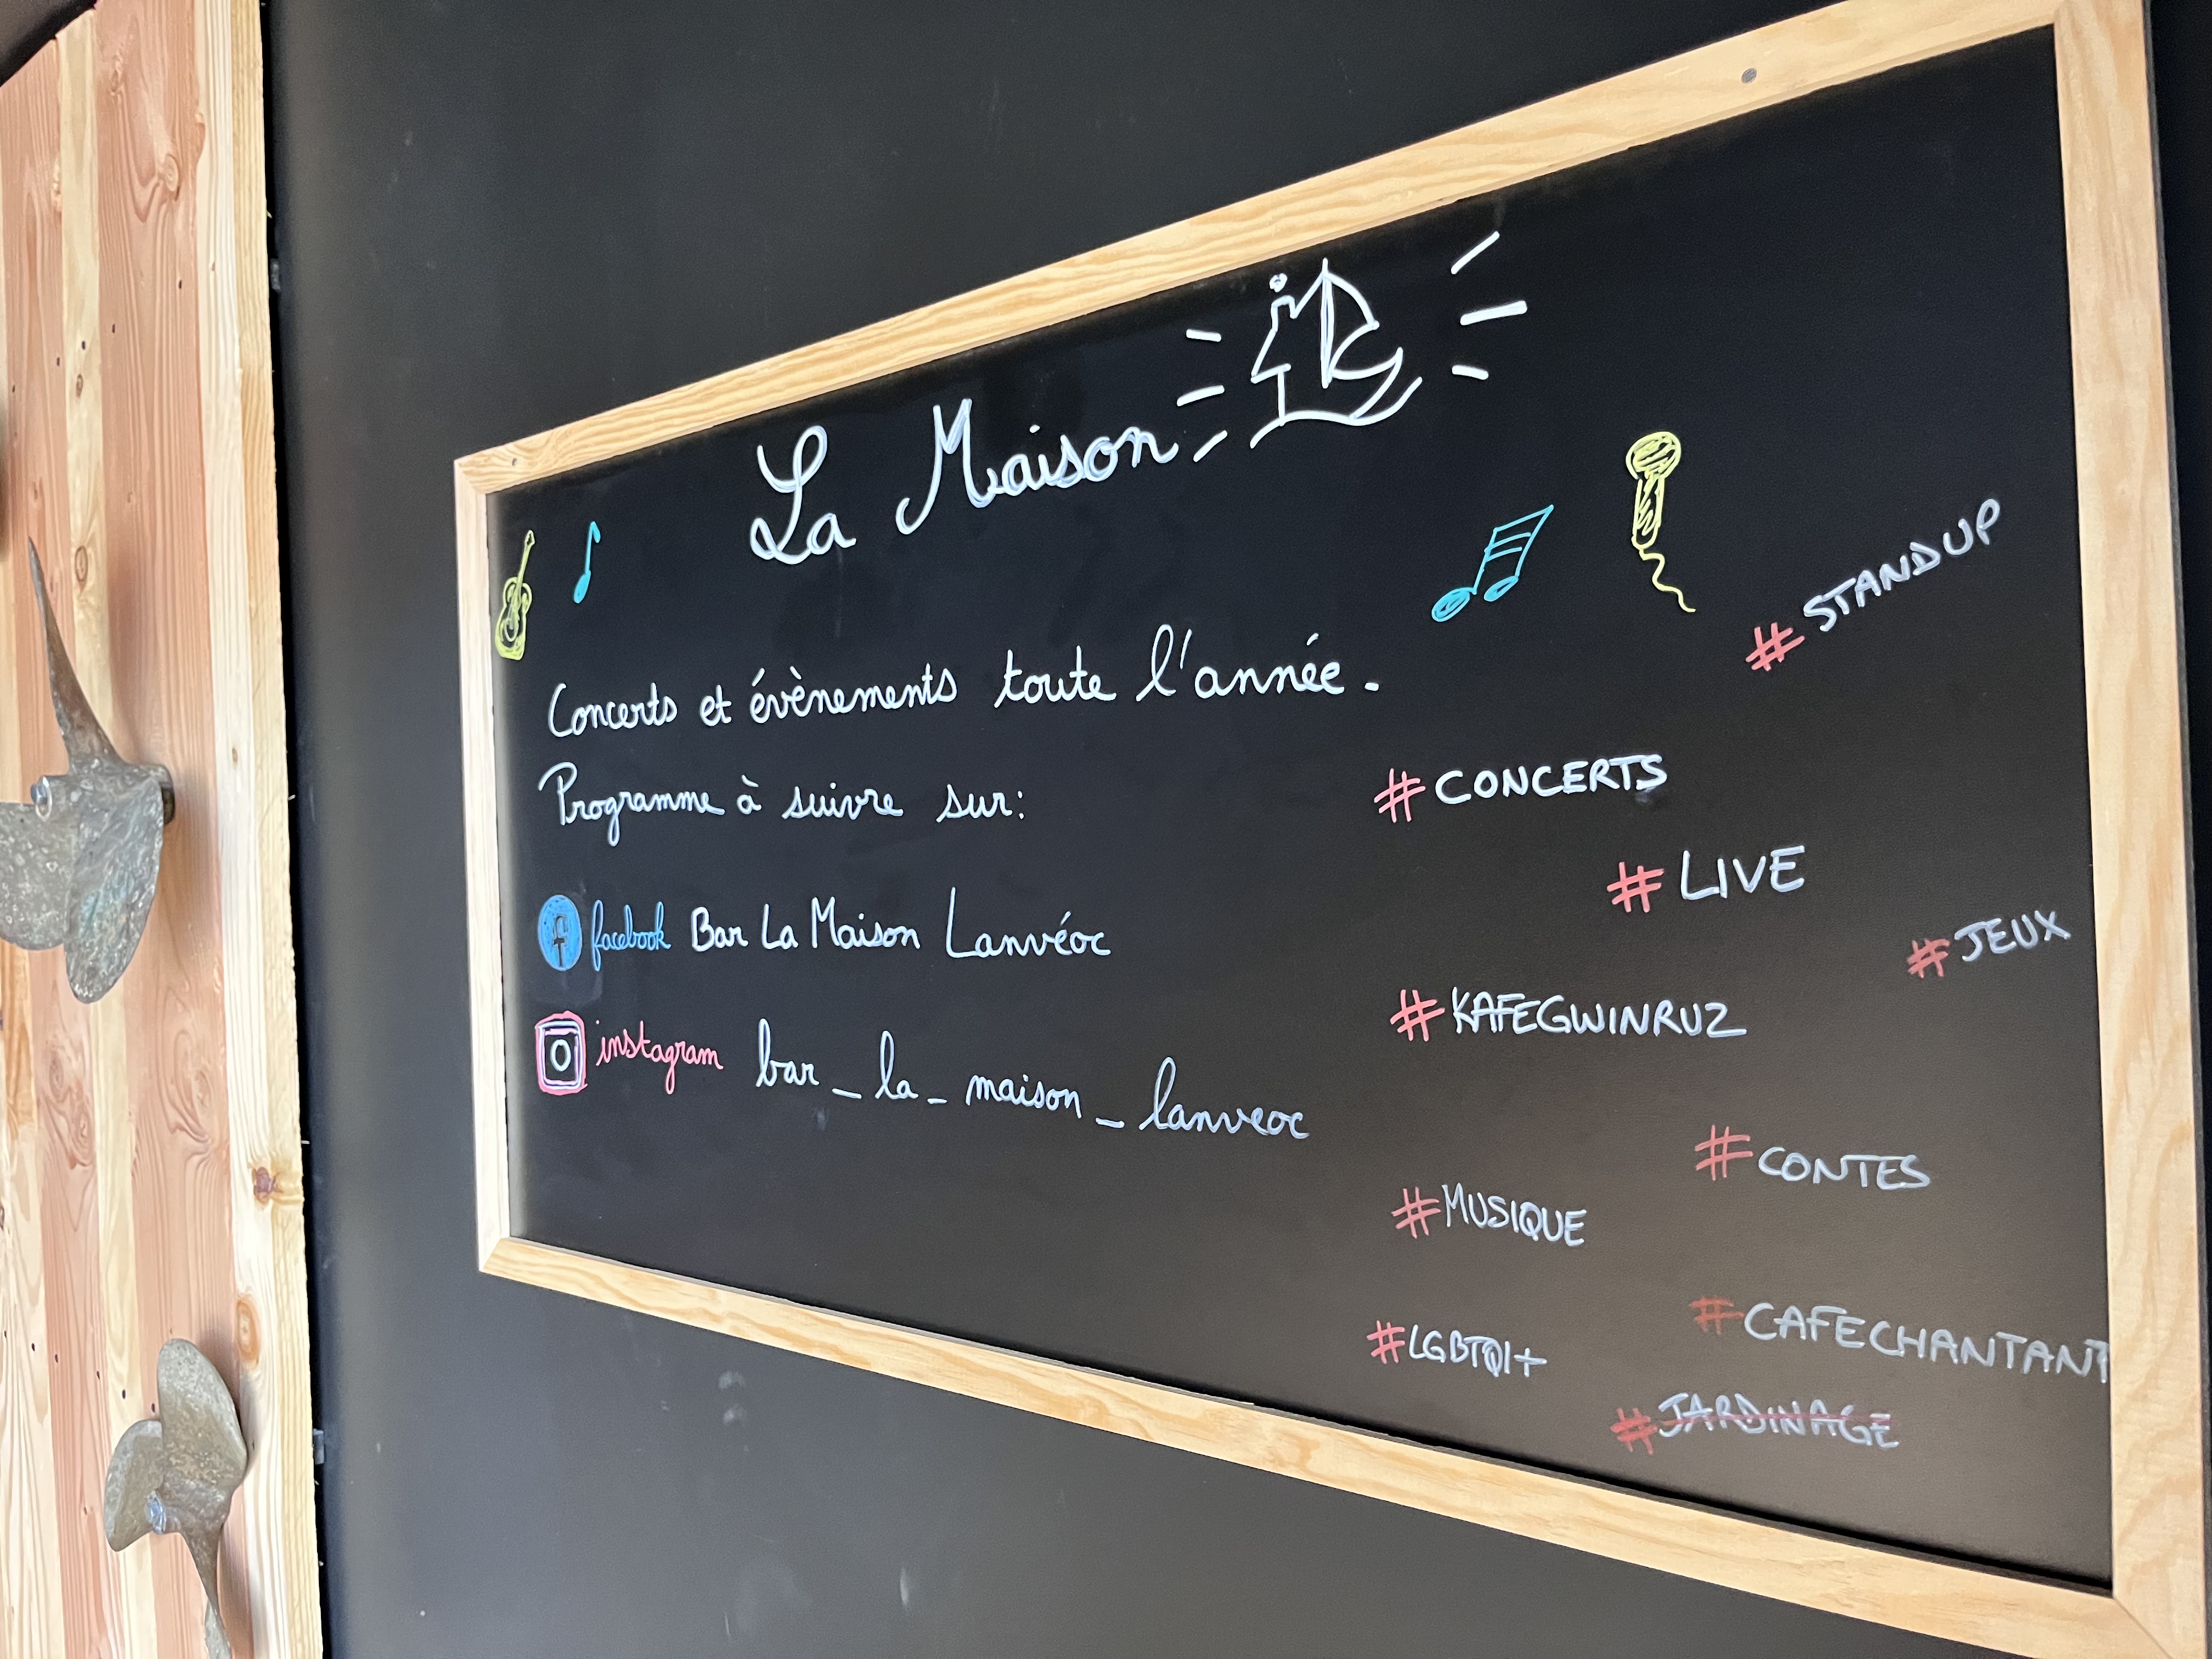 La Maison
Concerts et évènements toute l'année.
Programme à suivre sur:
facebook Bar La Maison Lanvéoc
instagram bar_la_maison_lanveoc
#STANDUP
#CONCERTS
#LIVE
#JEUX
#KAFEGWINRUZ
#CONTES
#MUSIQUE
#CAFECHANTANT
#LGBTQI+
#JARDINAGE